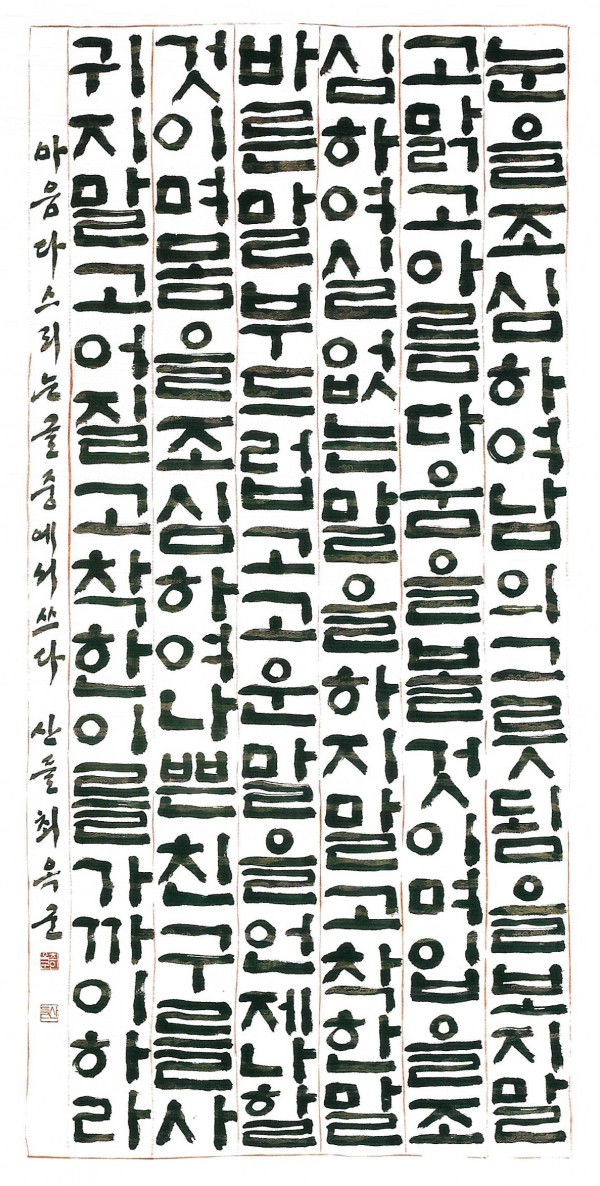 눈을조심하여남의그릇됨을보지말
고맑고아름다움을볼것이며입을조
심하여실없는말을하지말고착한말
바른말부드럽고고운말을언제나할
것이며몸을조심하여나쁜친구를사
귀지말고어질고착한이를가까이하라
마음다스리는글중에서쓰다 산들